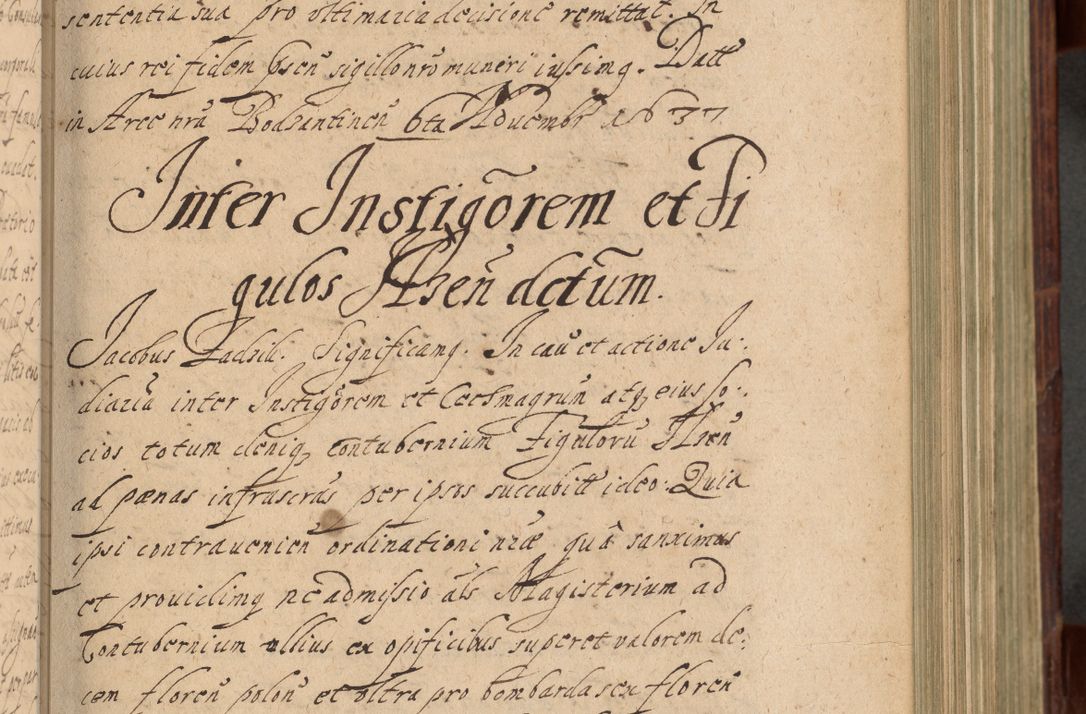 sententia sua pro ultimaria decisione remittat. In
cuius rei fidem psen sigillo nro muneri iussimq. Datt
in Arce nra Bodzantinen 6ta Novembr 1637
Inter Instigõrem et Fi
gulos Ilzeñ dctum.
Jacobus Zadzik. Significamq. In cau et actione Ju:
diaria inter Instigorem et Cechmagrum atq eius so:
cios totum deniq contubernium Figuloru Ilzen
ad pænas infrascras per ipsos succubitt ideo. Quia
ipsi contravenien ordinationi nræ quâ sanximus
et providimq ne admissio als Magisterium ad
Contubernium ullius ex opificibus superet valorem de:
cem floren polon et ultra pro bombarda seu floren